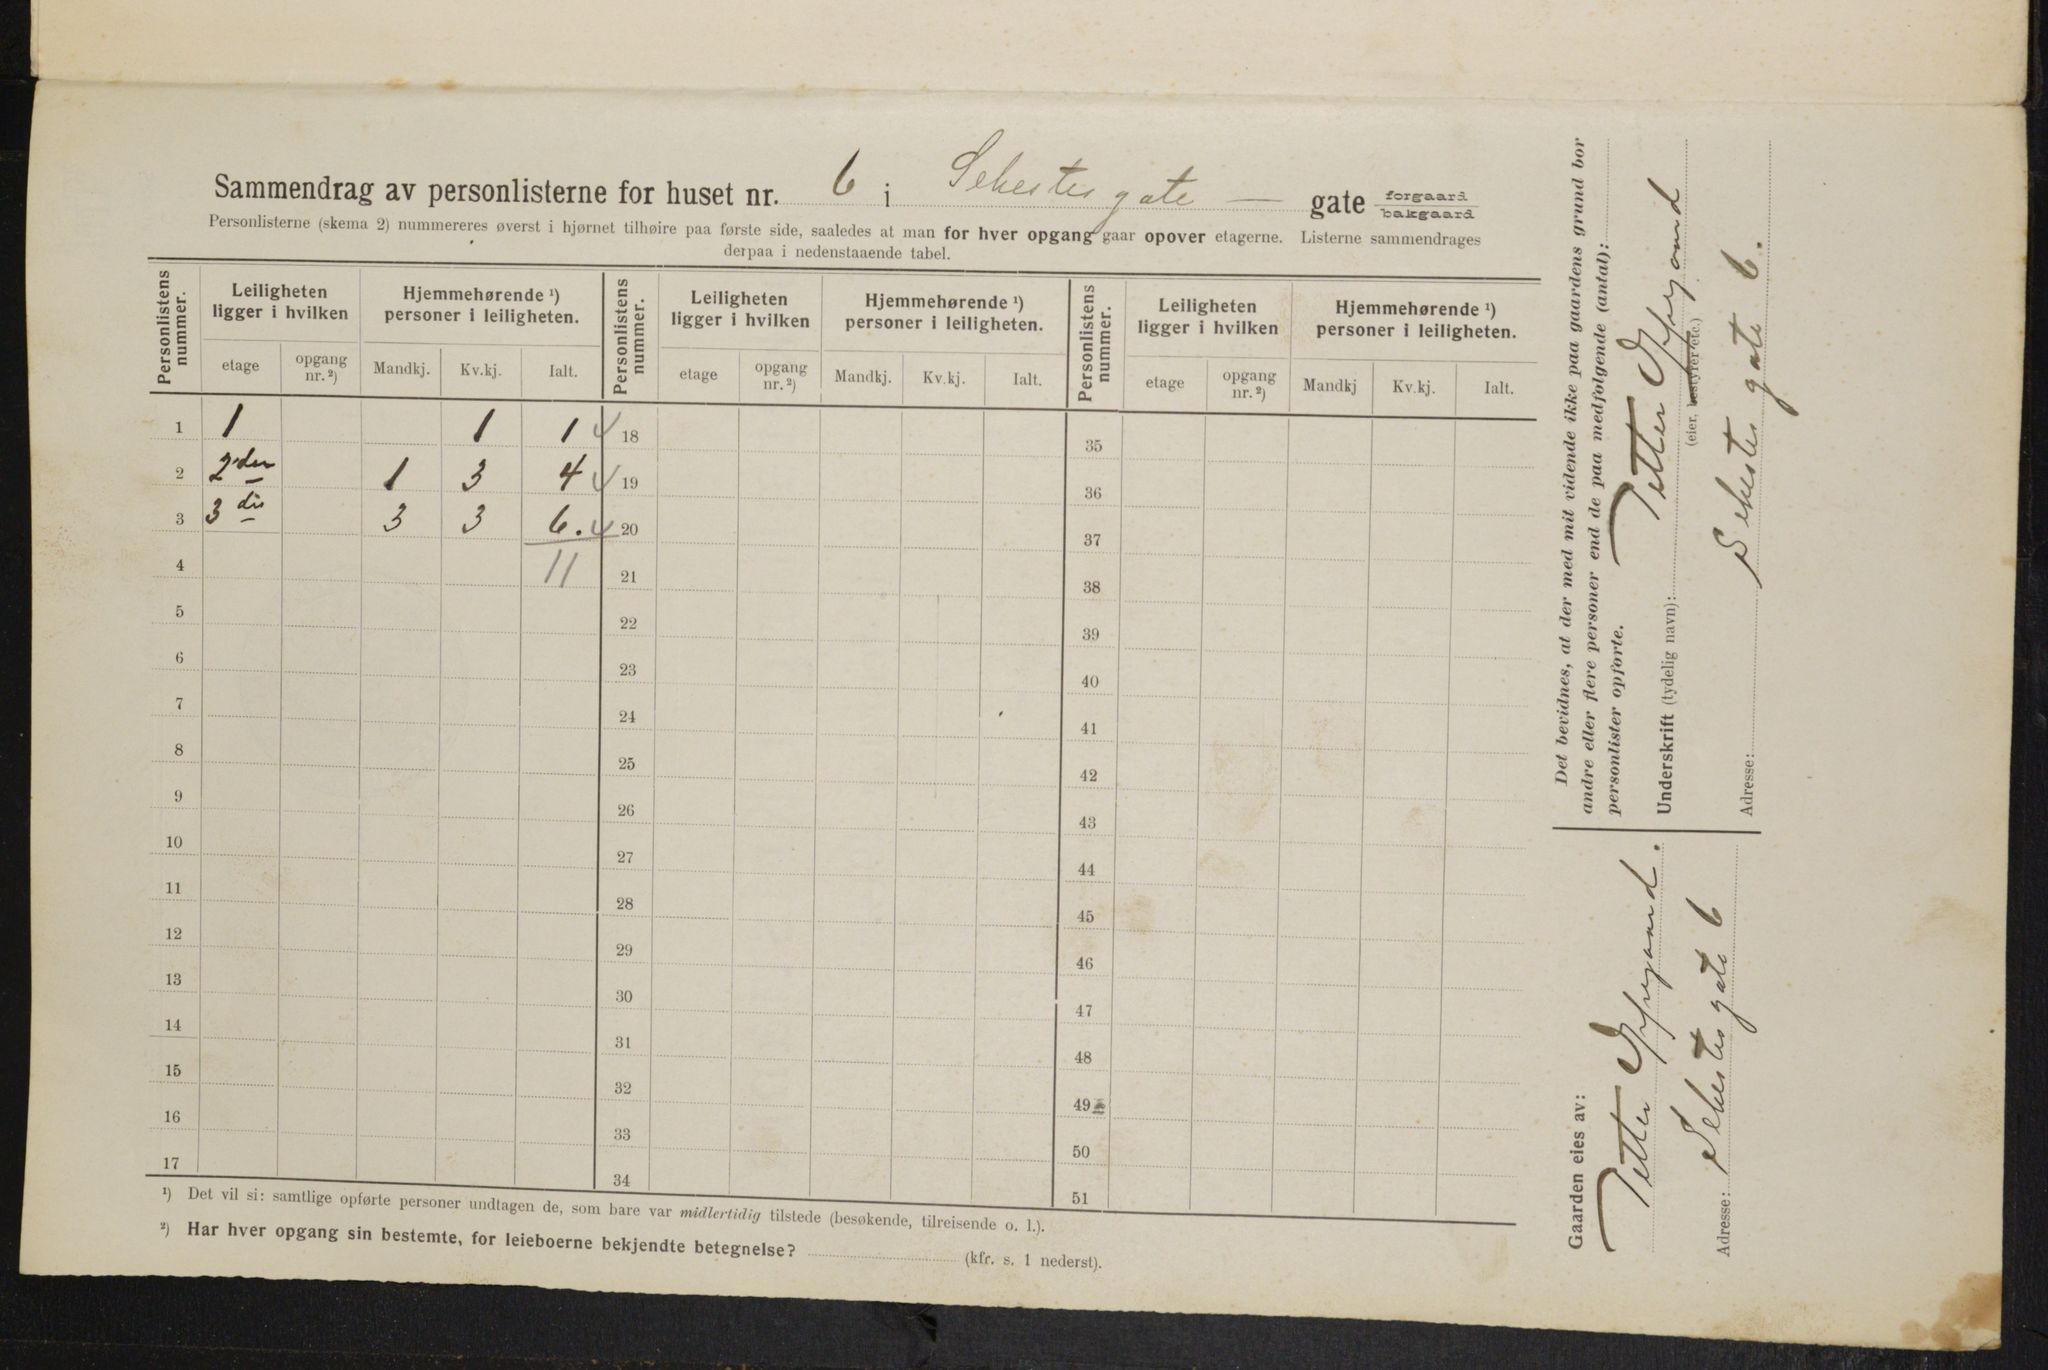 Sammendrag av personlisterne for huset nr. 6 i Sehestesgate — gate forgaard bakgaard
Personlisterne (skema 2) nummereres øverst i hjørnet tilhøire paa første side, saaledes at man for hver opgang gaar opover etagerne. Listerne sammendrages
derpaa i nedenstaaende tabel.
Personlistens nummer. Leiligheten ligger i hvilken Hjemmehørende ¹) personer i leiligheten. Personlistens nummer. Leiligheten ligger i hvilken Hjemmehørende ¹) personer i leiligheten. Personlistens nummer. Leiligheten ligger i hvilken Hjemmehørende ¹) personer i leiligheten.
etage opgang nr. ²) Mandkj. Kv.kj. Ialt. etage opgang nr. ²) Mandkj. Kv.kj. Ialt. etage opgang nr. ²) Mandkj Kv.kj. Ialt.
1 1 1 1 18 35
2 2den 1 3 4 19 36
3 3die 3 3 6. 20 37
4 11 21 38
5 22 39
6 23 40
7 24 41
8 25 42
9 26 43
10 27 44
11 28 45
12 29 46
13 30 47
14 31 48
15 32 49
16 33 50
17 34 51
¹) Det vil si: samtlige opførte personer undtagen de, som bare var midlertidig tilstede (besøkende, tilreisende o. l.).
²) Har hver opgang sin bestemte, for leieboerne bekjendte betegnelse? (kfr. s. 1 nederst).
Det bevidnes, at der med mit vidende ikke paa gaardens grund bor
andre eller flere personer end de paa medfølgende (antal):
personlister opførte.
Underskrift (tydelig navn): Petter
(eier, bestyrer etc.)
Adresse: Sehestes gate 6.
Gaarden eies av:
Petter
Adresse: Sehestesgate 6